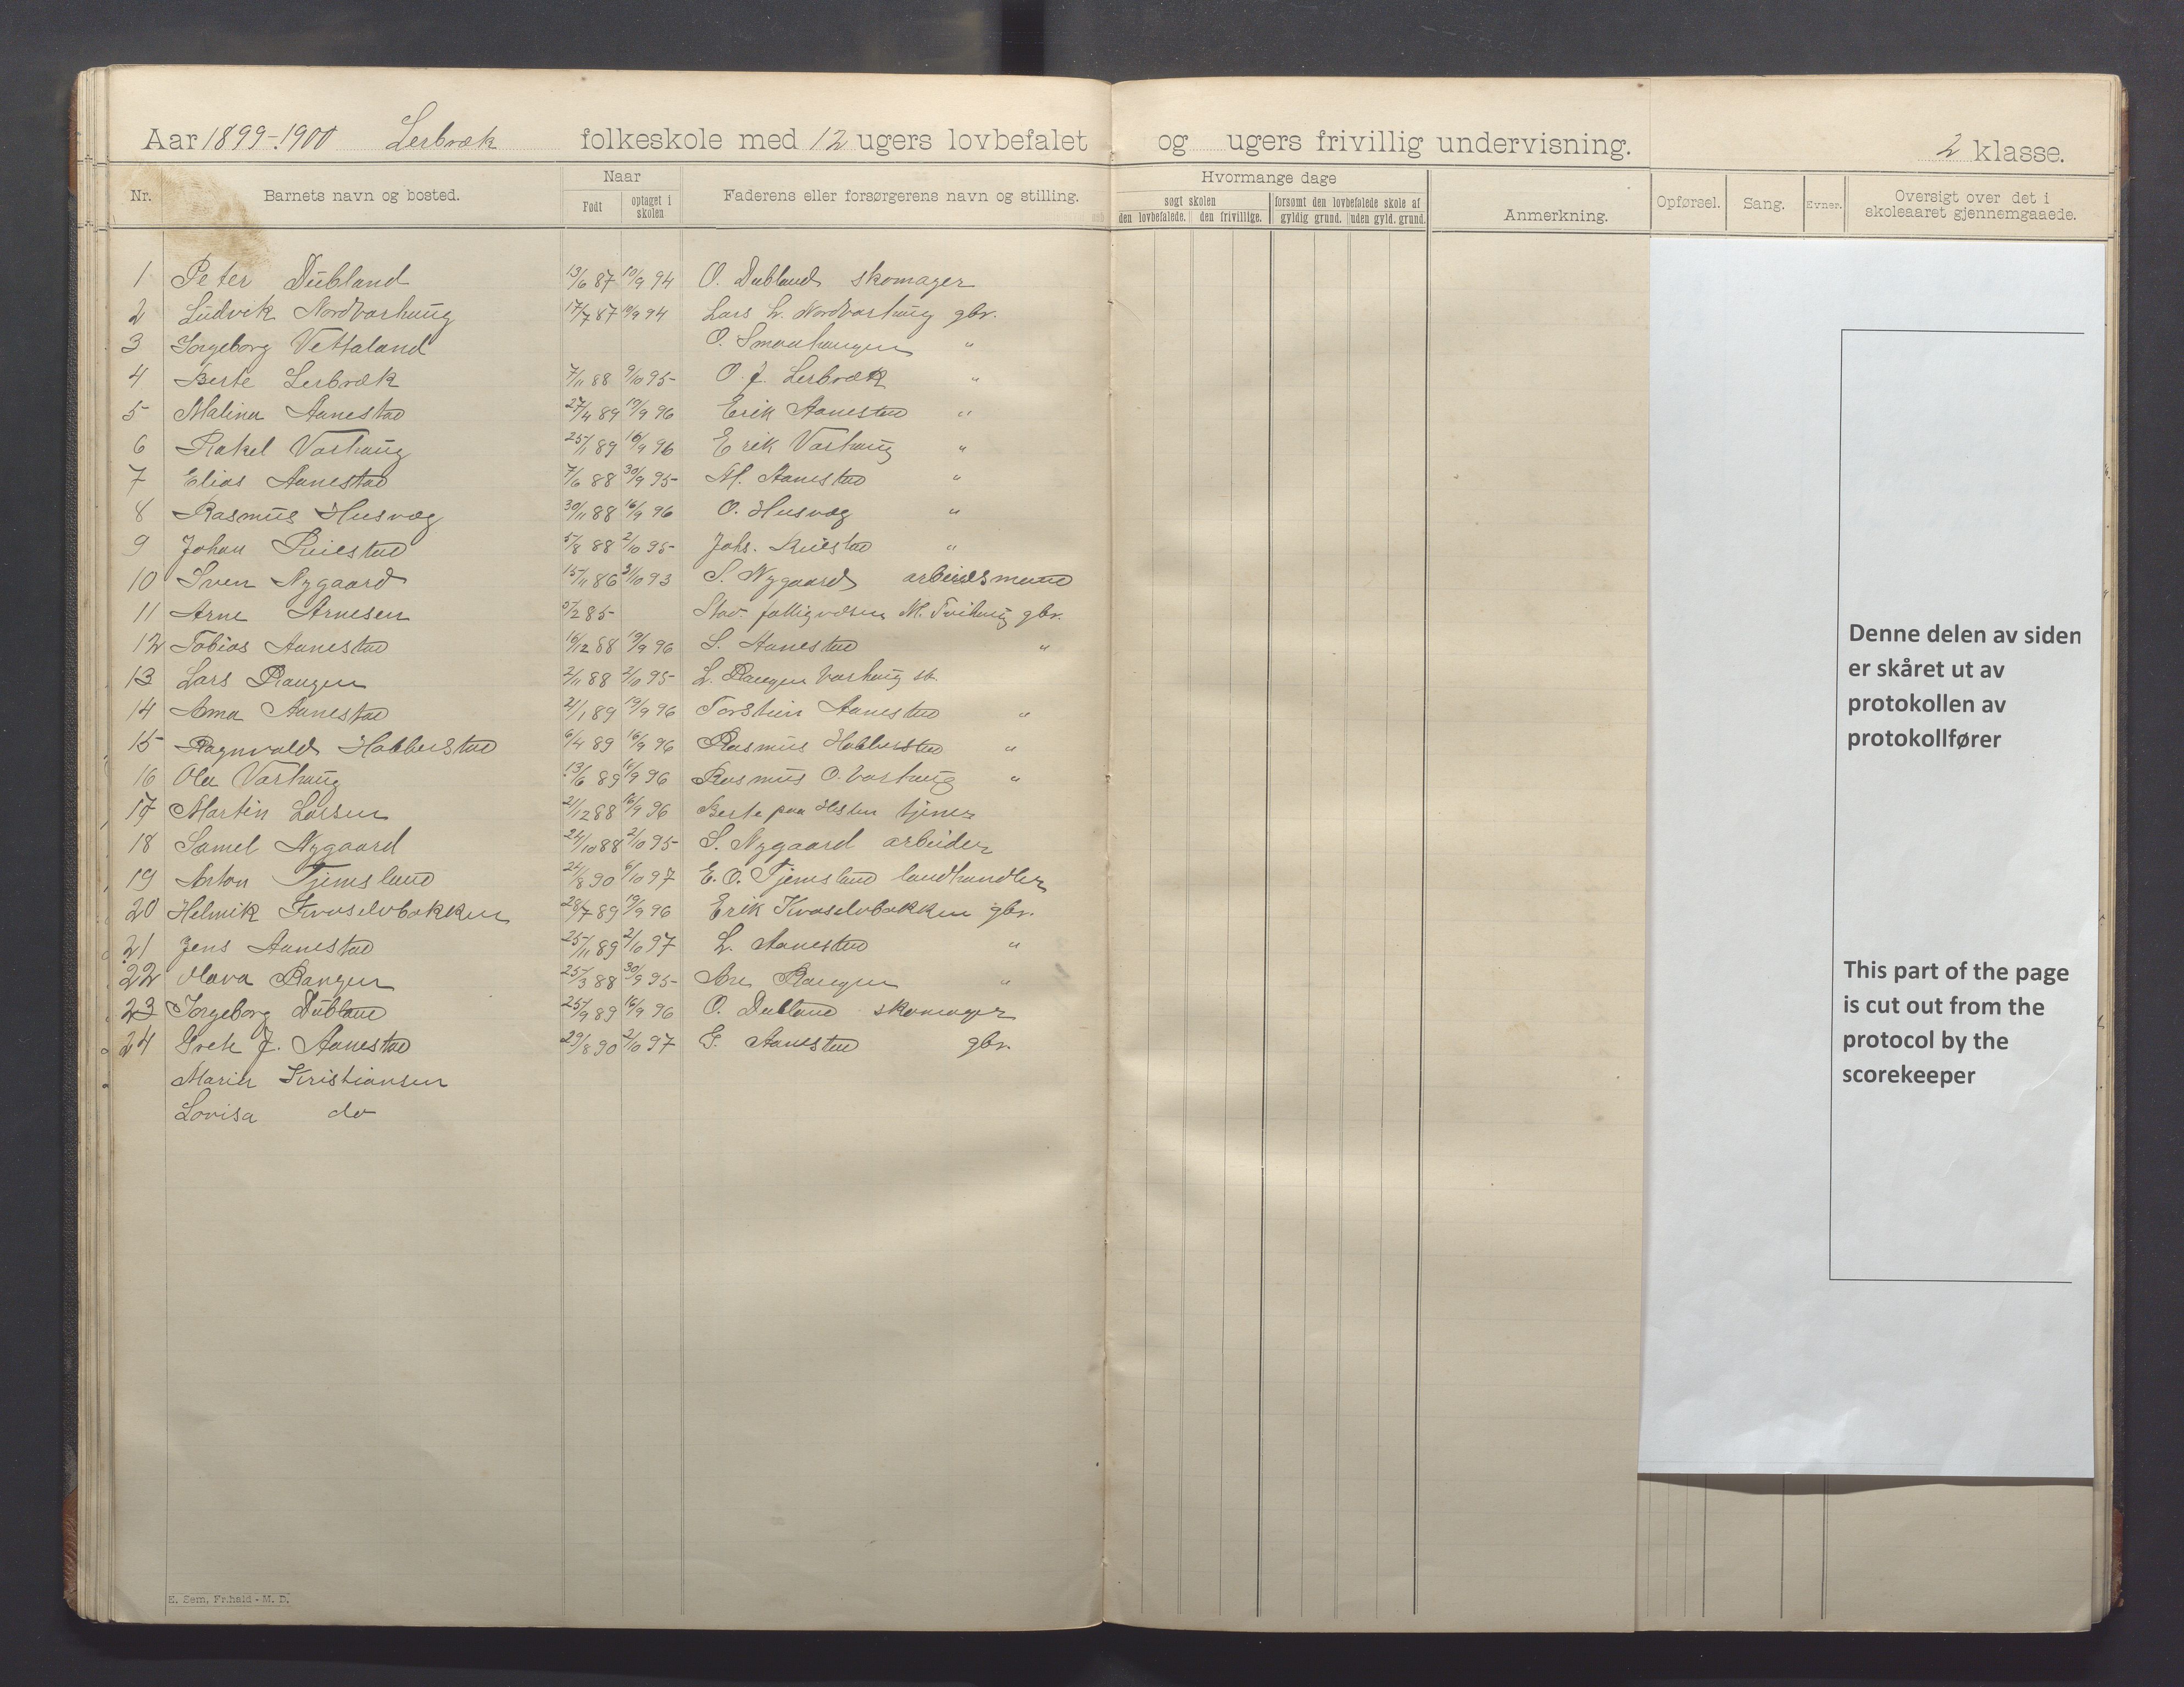 Aar 1899-1900 Lerbræk folkeskole med 12 ugers lovbefalet og ugers frivillig undervisning. 2 klasse.
Nr. Barnets navn og bosted. Naar Født optaget i skolen Faderens eller forsørgerens navn og stilling. Hvormange dage søgt skolen den lovbefalede. den frivillige. forsømt den lovbefalede skole af gyldig grund. uden gyld. grund. Anmerkning. Opførsel. Sang. Evner. Oversigt over det i skoleaaret gjennemgaaede.
1 Peter Dubland 13/6 87 10/9 94 O. Dubland skomager
2 Ludvik Nordvarhaug 17/7 87 10/9 94 Lars L. Nordvarhaug gbr.
3 Ingeborg Vettaland O. Smaahaugen "
4 Berte Lerbræk 7/11 88 9/10 95 O. J. Lerbræk "
5 Malina Aanestad 27/4 89 19/9 96 Erik Aanestad "
6 Rakel Varhaug 25/1 89 16/9 96 Erik Varhaug "
7 Elias Aanestad 7/6 88 30/9 95 M. Aanestad "
8 Rasmus Husvæg 30/11 88 16/9 96 O. Husvæg "
9 Johan Reiestad 5/8 88 2/10 95 Johs. Reiestad "
10 Sven Nygaard 15/11 86 3/10 93 S. Nygaard arbeidsmand
11 Arne Arnesen 5/2 85 Stav. fattigvæsen M. gbr.
12 Tobias Aanestad 16/12 88 19/9 96 S. Aanestad "
13 Lars Raugen 2/11 88 2/10 95 L. Raugen Varhaug st.
14 Anna Aanestad 21/1 89 19/9 96 Torstein Aanestad "
15 Ragnvald Habberstad 6/4 89 16/9 96 Rasmus Habberstad "
16 Ola Varhaug 13/6 89 16/9 96 Rasmus O. Varhaug "
17 Martin Larsen 21/12 88 16/9 96 Berte paa tjener
18 Samel Nygaard 24/10 88 2/10 95 S. Nygaard arbeider
19 Anton Tjemsland 24/8 90 6/10 97 E. O. Tjemsland landhandler
20 Helmik Kvaselvbakken 28/7 89 19/9 96 Erik Kvaselvbakken gbr.
21 Jens Aanestad 25/11 89 2/10 97 L. Aanestad "
22 Olava Rangen 25/3 88 30/9 95 Are Rangen "
23 Ingeborg Dubland 25/9 89 16/9 96 O. Dubland skomager
24 J. Aanestad 29/8 90 2/10 97 G. Aanestad gbr.
Marin Kristiansen
Lovisa do
Denne delen av siden
er skåret ut av
protokollen av
protokollfører
This part of the page
is cut out from the
protocol by the
scorekeeper
E. Sem, Fr.hald - M. D.